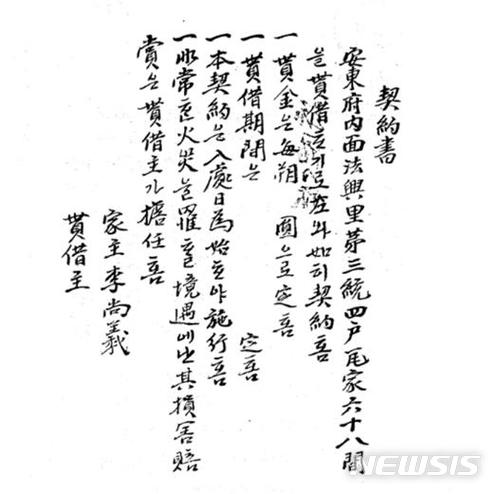 契約書
安東府內面法興里第三統四戶瓦家六十八間
을貰借ᄒᆞ기로左와如히契約홈
一 貰金은每朔 圜으로定홈
一 貰借期間은 定홈
一本契約은入處日爲始ᄒᆞ야施行홈
一非常ᄒᆞᆫ火災를罹ᄒᆞᆯ境遇에ᄂᆞᆫ其損害賠
賞은貰借主가擔任홈
家主李尙義
貰借主
NEWSIS